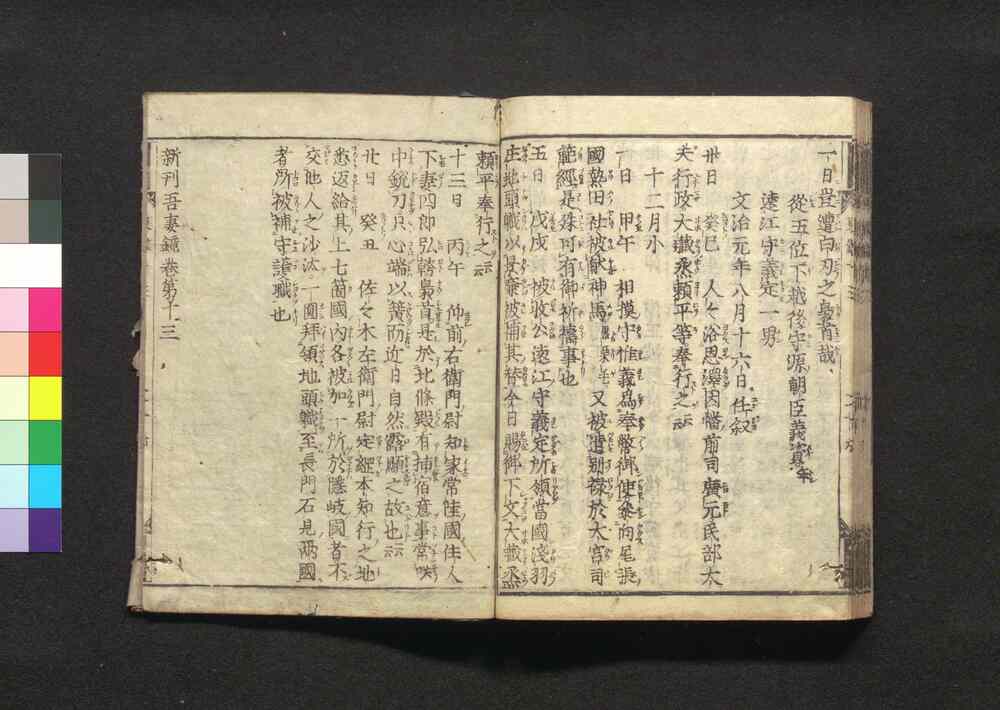 一日豈遭白刃之梟首哉、
從五位下越後守源朝臣義資卒
遠江守義定一男
文治元年八月十六日任叙
卅日　癸巳　人々浴恩澤因幡前司廣元民部太
夫行政大藏丞頼平等奉行之云云
十二月小
一日　甲午　相摸守惟義爲奉幣御使參向尾張
國熱田社被獻神馬又被遣別禄於大宮司
範經是殊可有御祈禱事也
五日　戊戌　被收公遠江守義定所領當國淺羽
庄地頭職以景廉被補其替今日賜御下文大藏丞
頼平奉行之云云
十三日　丙午　仲前右衛門尉知家常陸國住人
下妻四郎弘幹梟首是於北條殿有挿宿意事常咲
中鋭刀只心端以簧而近日自然露顯之故也云云
廿日　癸丑　佐々木左衛門尉定經本知行之地
悉返給其上七箇國內各被加一所於隱岐國者不
交他人之沙汰一圓拜領地頭職至長門石見兩國
者所被補守護職也
新刊吾妻鏡卷第十三